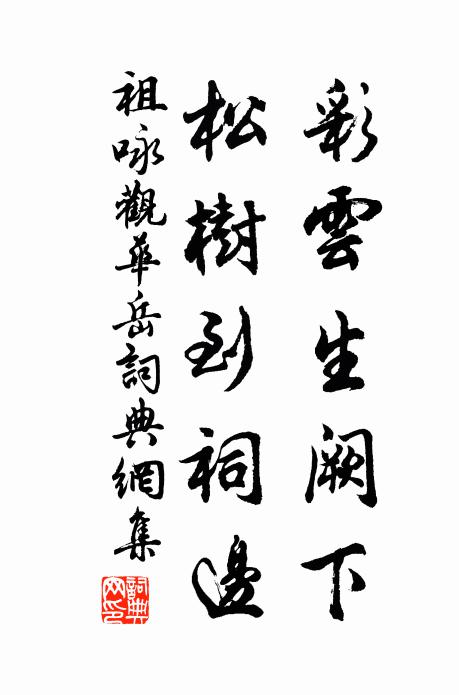 彩雲生闕下
松樹到祠邊
祖咏觀華岳詞典網集
詞典網印